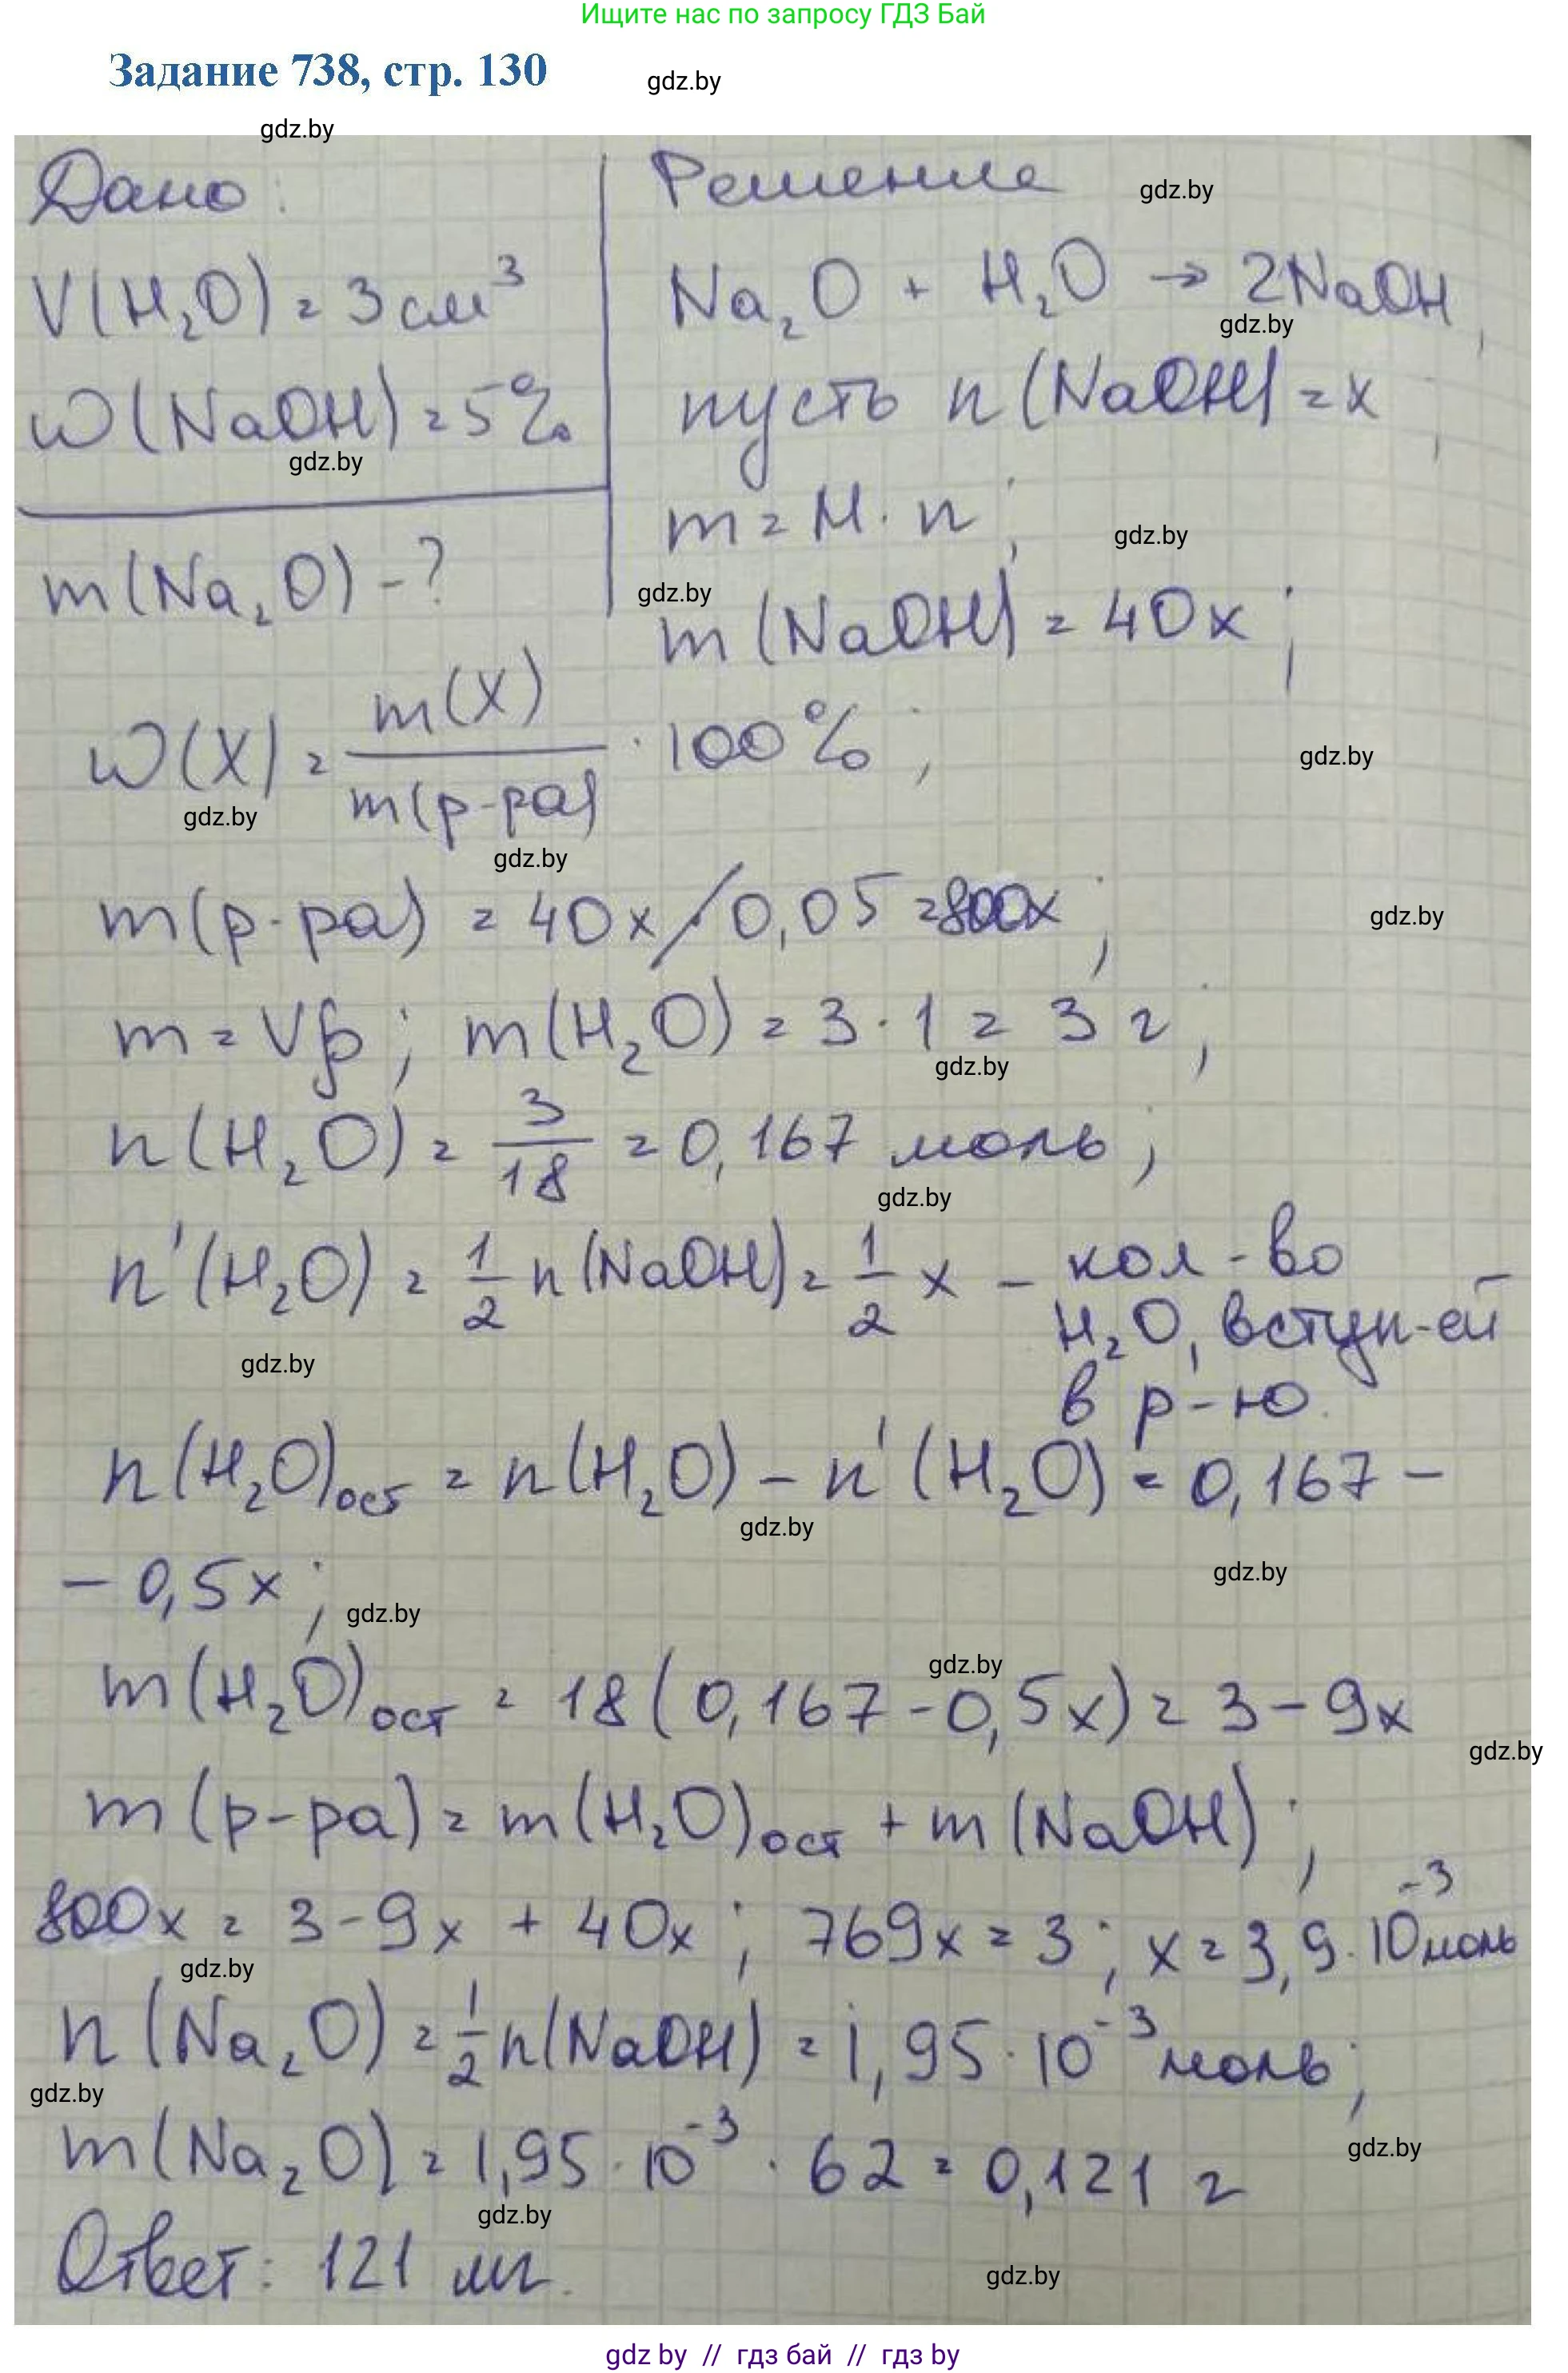 Ищите нас по запросу ГДЗ Бай
Задание 738, стр. 130
gdz.by
gdz.by
Дано:
V(H₂O) = 3 см³
ω(NaOH) = 5%
gdz.by
m(Na₂O) - ?
Решение
gdz.by
Na₂O + H₂O → 2NaOH,
gdz.by
пусть n(NaOH) = x;
m = M · n;
gdz.by
gdz.by
m(NaOH) = 40x;
ω(X) = m(X) / m(р-ра) · 100%;
gdz.by
gdz.by
gdz.by
m(р-ра) = 40x / 0,05 = 800x;
gdz.by
m = Vρ; m(H₂O) = 3 · 1 = 3 г;
gdz.by
n(H₂O) = 3/18 = 0,167 моль;
gdz.by
n'(H₂O) = 1/2 n(NaOH) = 1/2 x – кол-во
H₂O, вступ-ей
в р-ю.
gdz.by
n(H₂O)ост = n(H₂O) – n'(H₂O) = 0,167 –
gdz.by
– 0,5x;
gdz.by
gdz.by
gdz.by
m(H₂O)ост = 18(0,167 - 0,5x) = 3 - 9x
gdz.by
m(р-ра) = m(H₂O)ост + m(NaOH);
800x = 3 - 9x + 40x; 769x = 3; x = 3,9 · 10⁻³ моль
gdz.by
n(Na₂O) = 1/2 n(NaOH) = 1,95 · 10⁻³ моль;
gdz.by
m(Na₂O) = 1,95 · 10⁻³ · 62 = 0,121 г
gdz.by
gdz.by
Ответ: 121 мг.
gdz.by
gdz by // гдз бай // гдз by